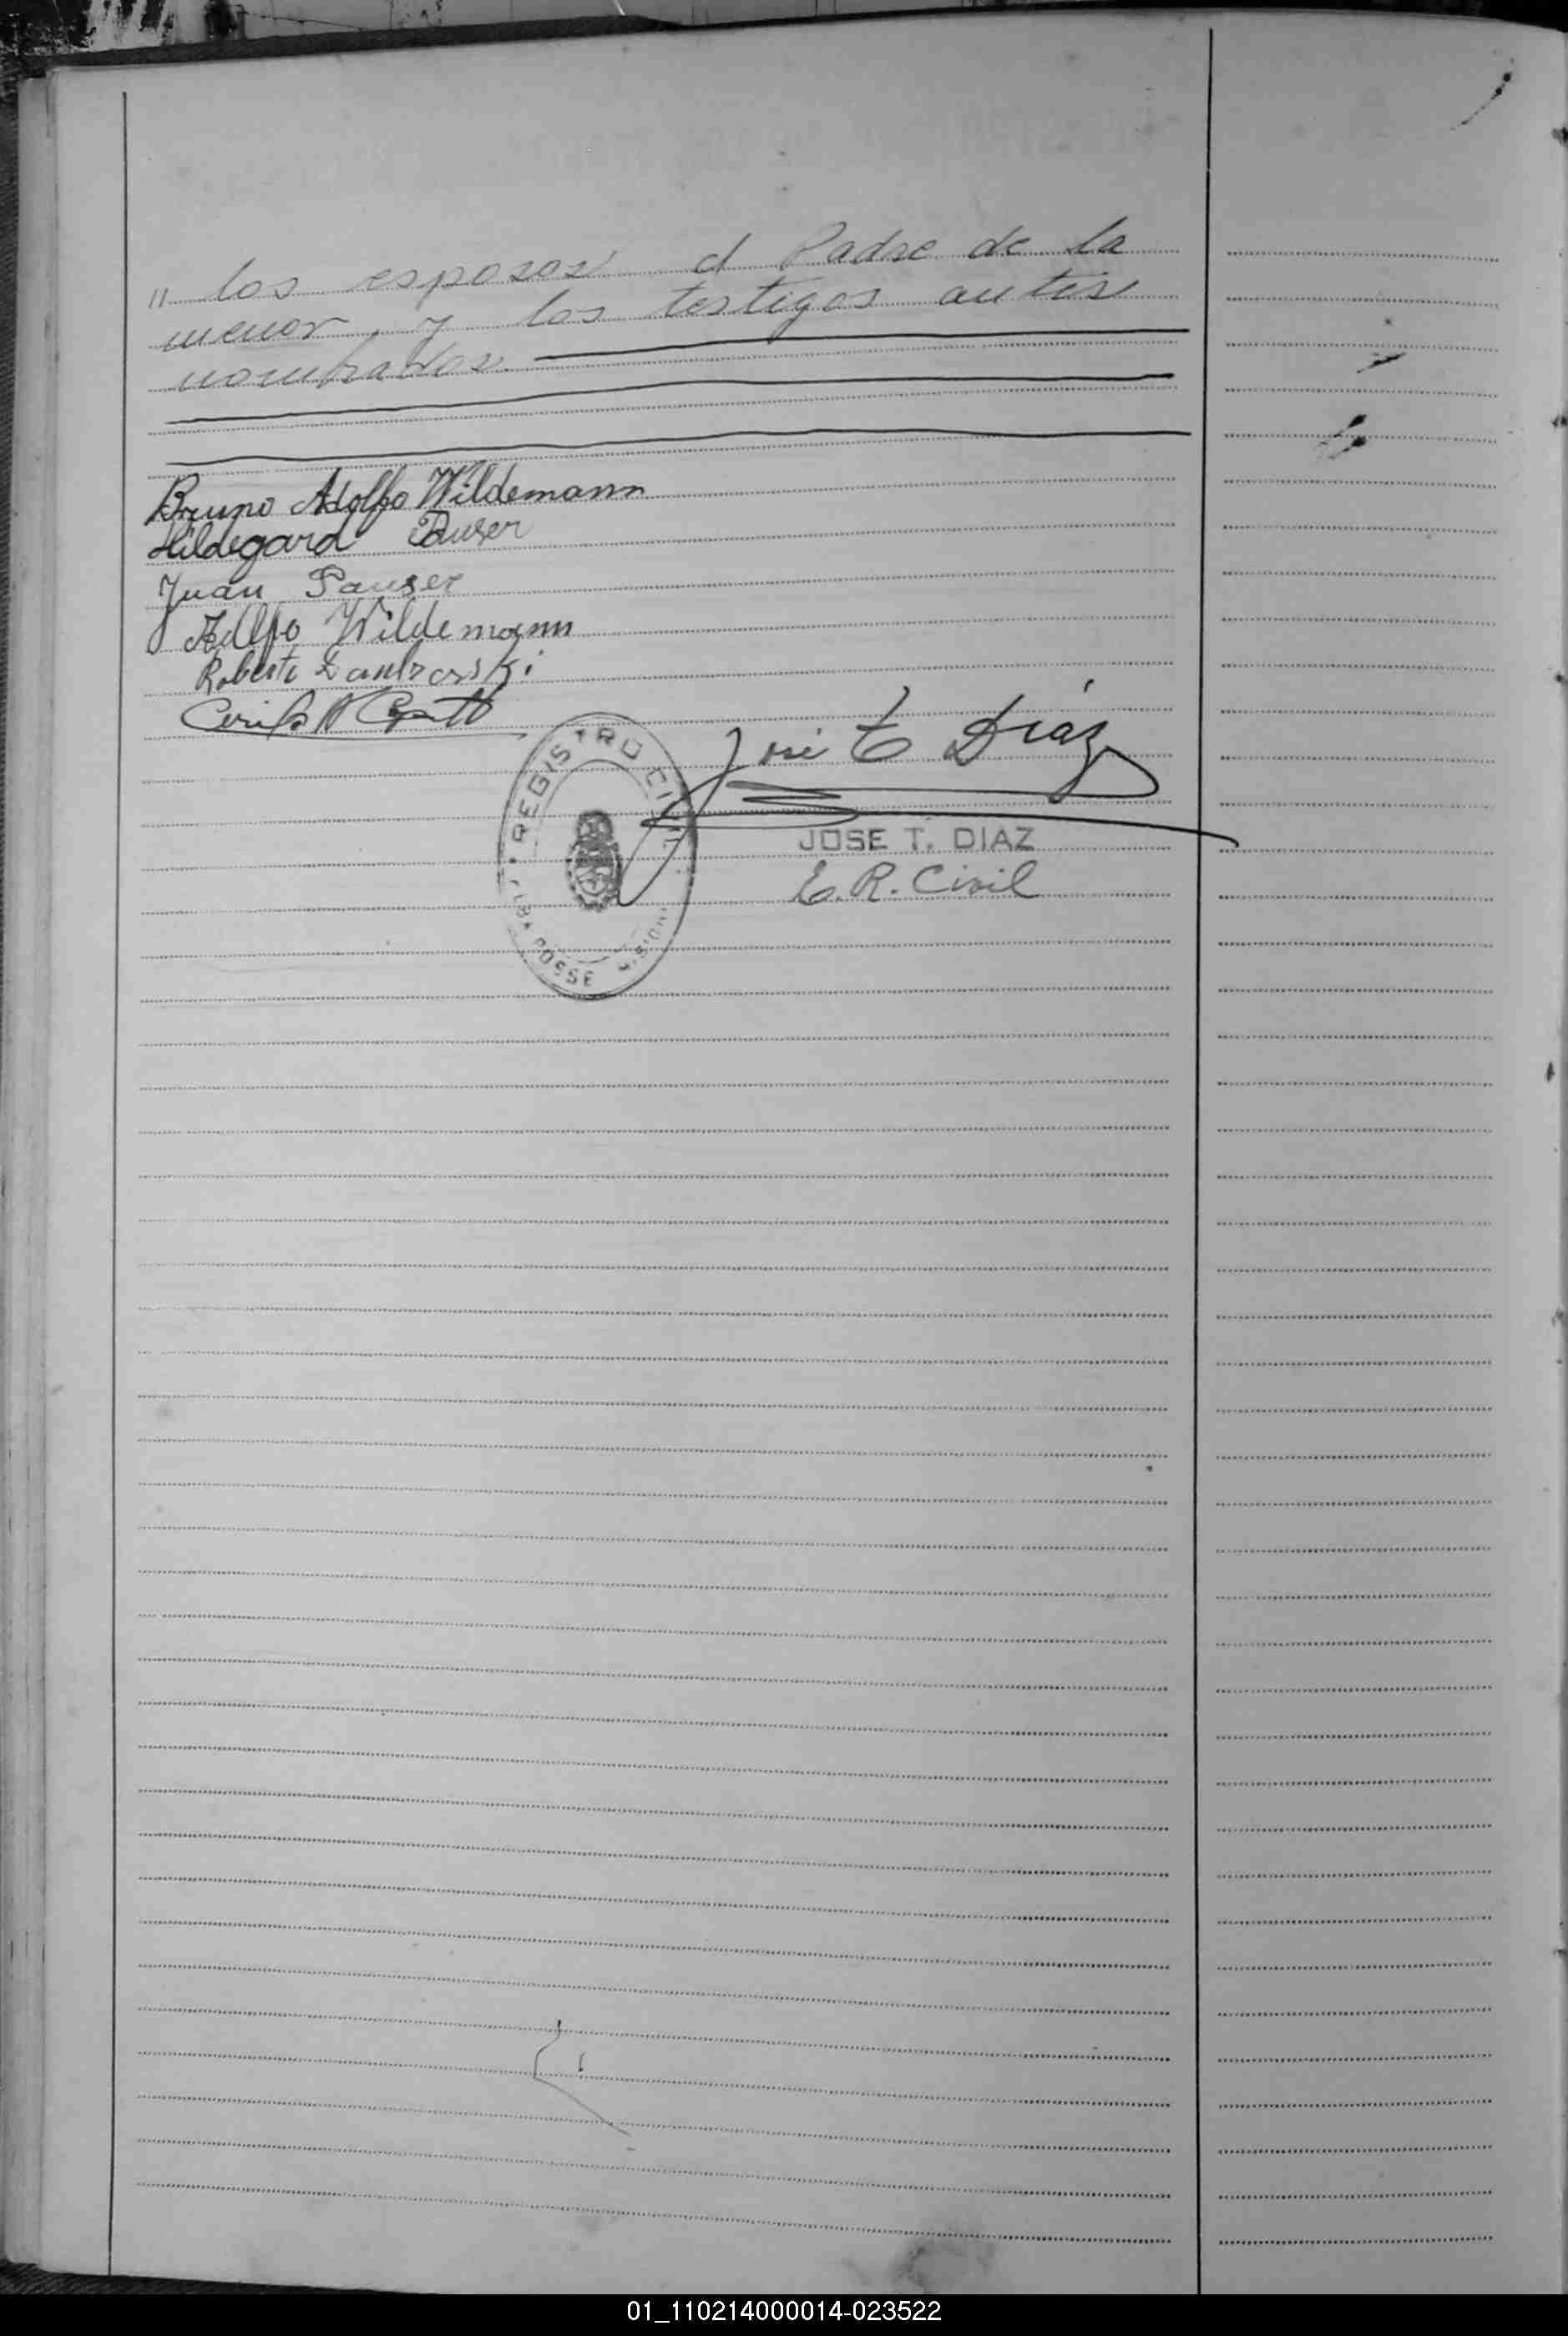 " los esposos el Padre de la
menor, y los testigos antes
nombrados.
Bruno Adolfo Wildemann
Hildegard
Juan Pauser
Adolfo Wildemann
Roberto
José T Díaz
REGISTRO CIVIL
ALBA POSSE
JOSE T. DIAZ
E. R. Civil
01_110214000014-023522